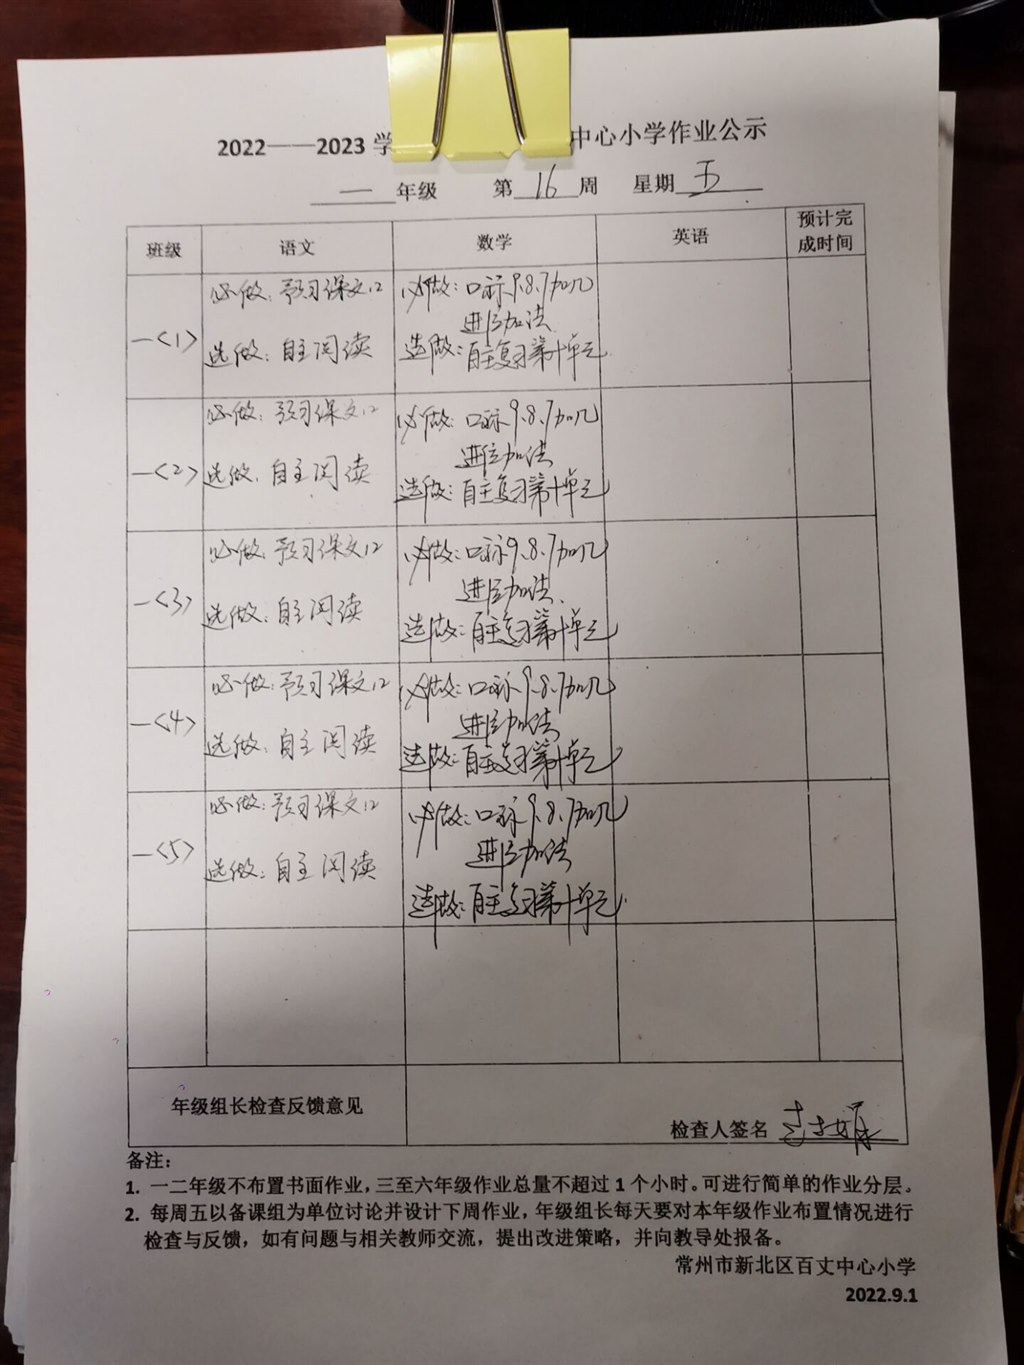 2022——2023 学 中心小学作业公示
一 年级 第 16 周 星期 五
班级 语文 数学 英语 预计完成时间
一<1>
必做：预习课文12
选做：自主阅读
必做：口标9.8.7加几
进位加法
选做：自主复习第十单元
一<2>
必做：预习课文12
选做：自主阅读
必做：口标9.8.7加几
进位加法
选做：自主复习第十单元
一<3>
必做：预习课文12
选做：自主阅读
必做：口标9.8.7加几
进位加法
选做：自主复习第十单元
一<4>
必做：预习课文12
选做：自主阅读
必做：口标9.8.7加几
进位加法
选做：自主复习第十单元
一<5>
必做：预习课文12
选做：自主阅读
必做：口标9.8.7加几
进位加法
选做：自主复习第十单元
年级组长检查反馈意见
检查人签名
备注：
1. 一二年级不布置书面作业，三至六年级作业总量不超过 1 个小时。可进行简单的作业分层。
2. 每周五以备课组为单位讨论并设计下周作业，年级组长每天要对本年级作业布置情况进行
检查与反馈，如有问题与相关教师交流，提出改进策略，并向教导处报备。
常州市新北区百丈中心小学
2022.9.1